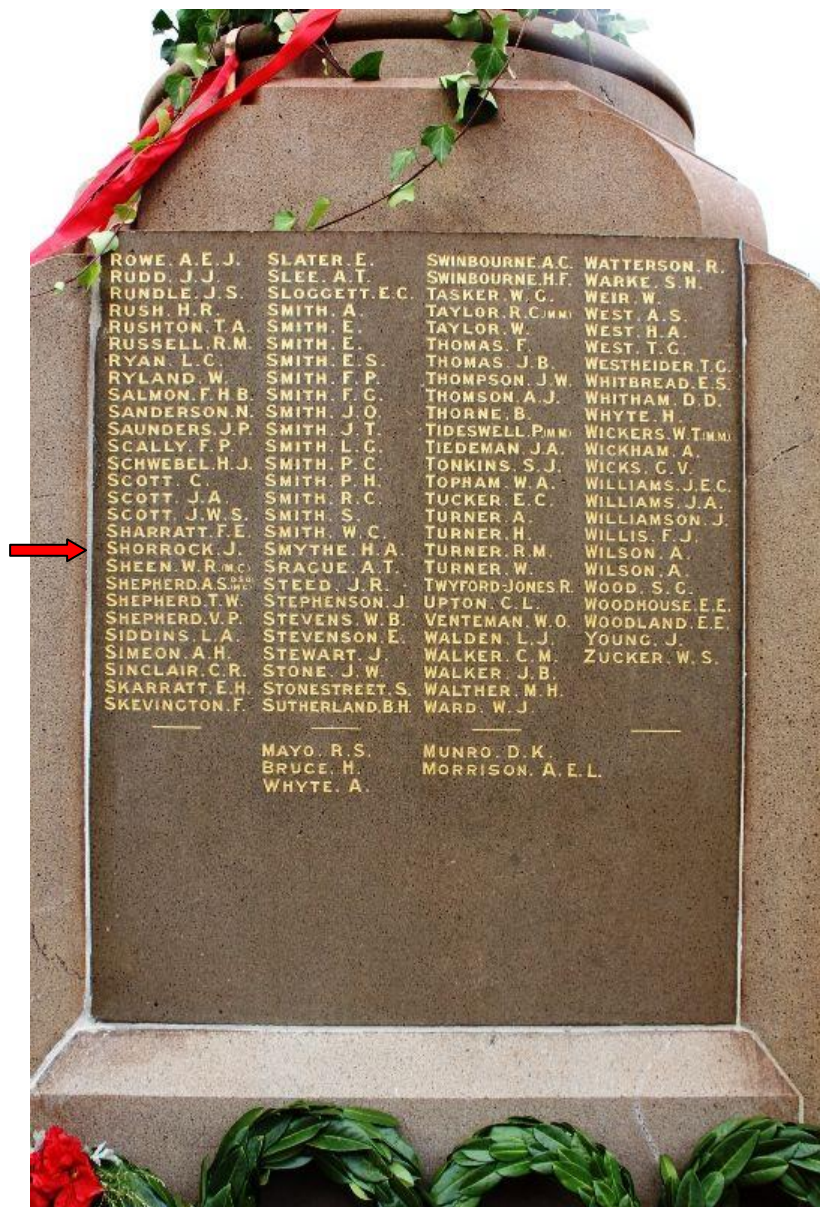 ROWE. A.E.J.
RUDD. J.J
RUNDLE. J.S.
RUSH. H.R.
RUSHTON. T.A.
RUSSELL. R.M.
RYAN. L.C.
RYLAND. W.
SALMON. F.H.B.
SANDERSON. N.
SAUNDERS. J.P.
SCALLY. F.P.
SCHWEBEL. H.J.
SCOTT. C.
SCOTT. J.A.
SCOTT. J.W.S.
SHARRATT. F.E.
SHORROCK. J.
SHEEN. W.R. (M.C.)
SHEPHERD. A.S. D.S.O. M.C.
SHEPHERD. T.W.
SHEPHERD. V.P.
SIDDINS. L.A.
SIMEON. A.H.
SINCLAIR. C.R.
SKARRATT. E.H.
SKEVINGTON. F.
SLATER. E.
SLEE. A.T.
SLOGGETT. E.C.
SMITH. A.
SMITH. E.
SMITH. E.
SMITH. E.S.
SMITH. F.P.
SMITH. F.G.
SMITH. J.O.
SMITH. J.T.
SMITH. L.G.
SMITH. P.C.
SMITH. P.H.
SMITH. R.C.
SMITH. S.
SMITH. W.C.
SMYTHE. H.A.
SRAGUE. A.T.
STEED. J.R.
STEPHENSON. J.
STEVENS. W.B.
STEVENSON. E.
STEWART. J.
STONE. J.W.
STONESTREET. S.
SUTHERLAND. B.H.
SWINBOURNE. A.C.
SWINBOURNE. H.F.
TASKER. W.G.
TAYLOR. R.C. (M.M.)
TAYLOR. W.
THOMAS. F.
THOMAS. J.B.
THOMPSON. J.W.
THOMSON. A.J.
THORNE. B.
TIDESWELL. P. (M.M.)
TIEDEMAN. J.A.
TONKINS. S.J.
TOPHAM. W.A.
TUCKER. E.C.
TURNER. A.
TURNER. H.
TURNER. R.M.
TURNER. W.
TWYFORD-JONES. R.
UPTON. C.L.
VENTEMAN. W.O.
WALDEN. L.J.
WALKER. C.M.
WALKER. J.B.
WALTHER. M.H.
WARD. W.J
WATTERSON. R.
WARKE. S.H.
WEIR. W.
WEST. A.S.
WEST. H.A.
WEST. T.G.
WESTHEIDER. T.G.
WHITBREAD. E.S.
WHITHAM. D.D.
WHYTE. H.
WICKERS. W.T. (M.M.)
WICKHAM. A.
WICKS. G.V.
WILLIAMS. J.E.C.
WILLIAMS. J.A.
WILLIAMSON. J.
WILLIS. F.J.
WILSON. A.
WILSON. A.
WOOD. S.G.
WOODHOUSE. E.E.
WOODLAND. E.E.
YOUNG. J.
ZUCKER. W.S.
MAYO. R.S.
BRUCE. H.
WHYTE. A.
MUNRO. D.K.
MORRISON. A.E.L.